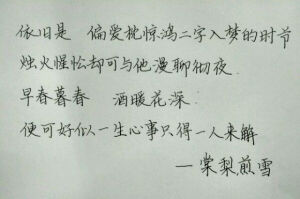 依旧是 偏爱枕惊鸿二字入梦的时节
烛火惺忪却可与他漫聊彻夜
早春暮春 酒暖花深
便可好似一生心事只得一人来解
—棠梨煎雪